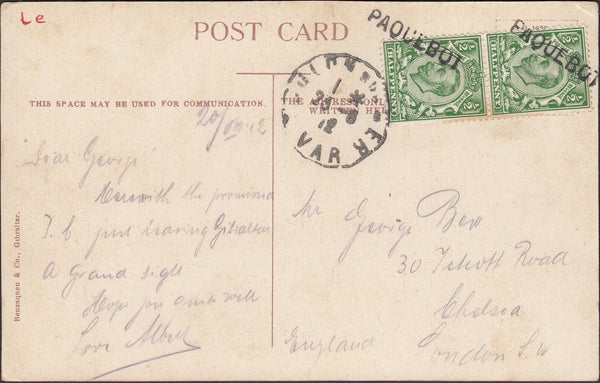 Le
POST CARD
PAQUEBOT
PAQUEBOT
HALFPENNY
HALFPENNY
THIS SPACE MAY BE USED FOR COMMUNICATION.
THE ADDRESS ONLY
WRITTEN HERE
12
VAR
20/VIII 12
Dear George
Herewith the promised
P. C. just leaving Gibraltar
A Grand Sight
Hope you quite well
Love Albert
Mr George Bew
30 Road
Chelsea
London S. W
England
Benzaquen & Co., Gibraltar.